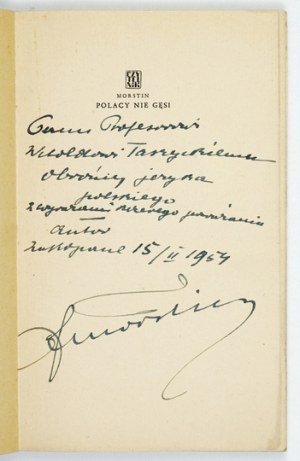 CZYTELNIK
MORSTIN
POLACY NIE GĘSI
Panu Profesorowi
Witoldowi Taszyckiemu
obrońcy języka
polskiego
z wyrazami szczerego poważania
autor
Zakopane 15/II 1954
LHMorstin